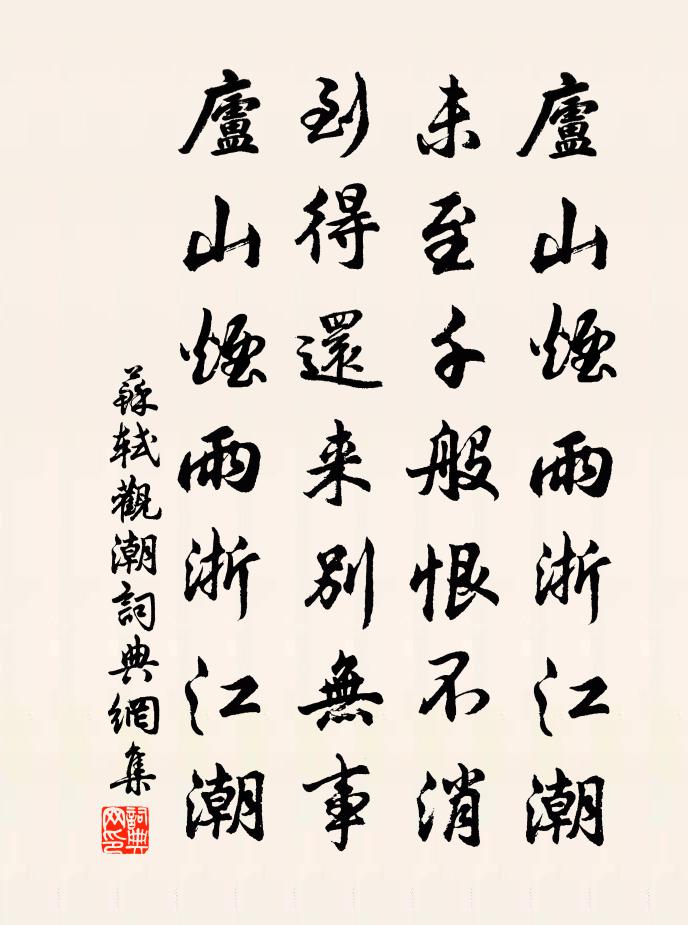 廬山煙雨浙江潮
未至千般恨不消
到得還来別無事
廬山煙雨浙江潮
蘇軾觀潮詞典網集
詞典
网印